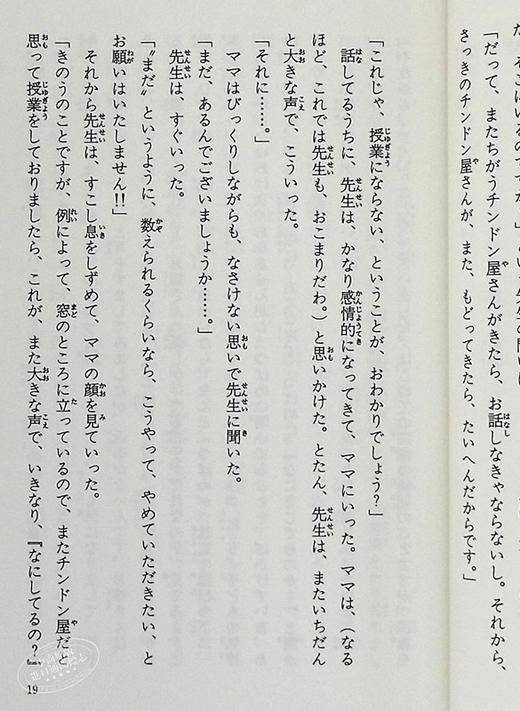 「だって、またちがうチンドン屋さんがきたら、お話しなきゃならないし。それから、
さっきのチンドン屋さんが、また、もどってきたら、たいへんだからです。」
「これじゃ、授業にならない、ということが、おわかりでしょう？」
話してるうちに、先生は、かなり感情的になってきて、ママにいった。ママは、（なる
ほど、これでは先生も、おこまりだわ。）と思いかけた。とたん、先生は、またいちだん
と大きな声で、こういった。
「それに……。」
ママはびっくりしながらも、なさけない思いで先生に聞いた。
「まだ、あるんでございましょうか……。」
先生は、すぐいった。
「〝まだ〟というように、数えられるくらいなら、こうやって、やめていただきたい、と
お願いはいたしません!!」
それから先生は、すこし息をしずめて、ママの顔を見ていった。
「きのうのことですが、例によって、窓のところに立っているので、またチンドン屋だと
思って授業をしておりましたら、これが、また大きな声で、いきなり、『なにしてるの？』
19